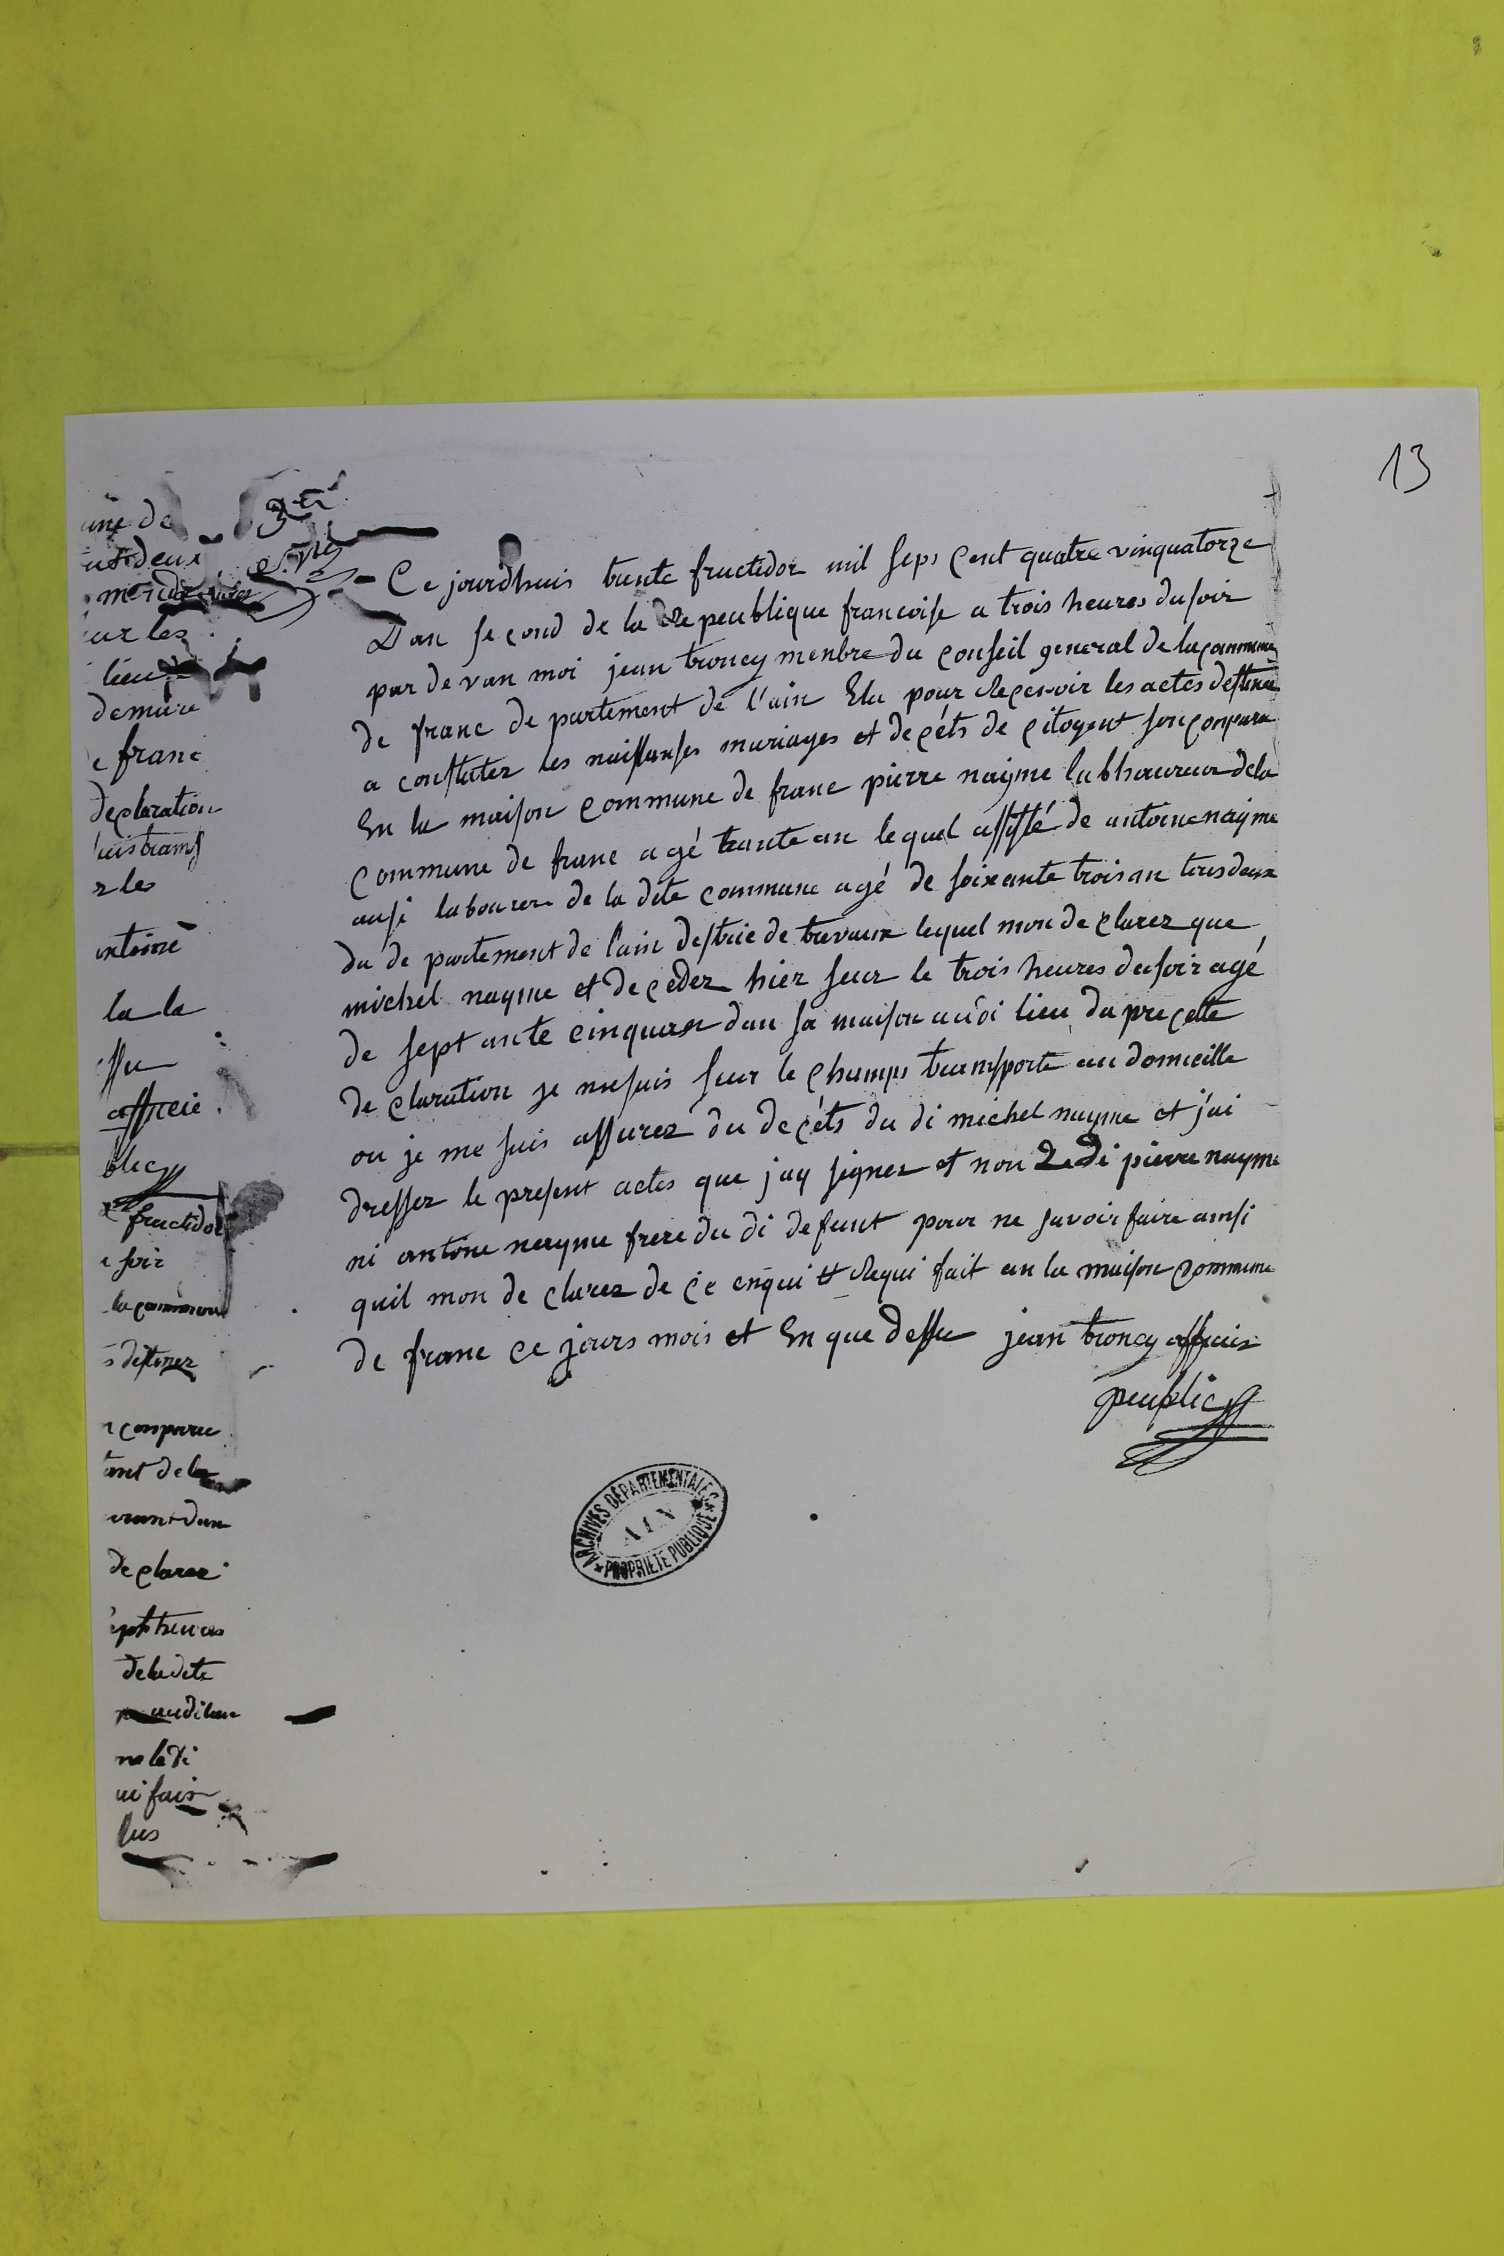 13
une de
deux
ur les
lieu
demure
e franc
declaration
r les
antoine
la la
essu
afficié
blic
fructidor
e soir
la commune
s destinez
comparu
ant de la
de clarez
ept heures
de la dite
no le di
ui fais
sus
3
Ce jourdhuis trente fructidor mil seps cent quatre vinquatorze
L an se cond de la Re peublique francoise a trois heures du soir
par de van moi jean troncy menbre du conseil general de la commune
de franc de partement de l'ain Elu pour Recevoir les actes destinez
a constater les naissanses mariages et decéts de citoyent son conparu
En la maison commune de franc pierre nayme labhoureur de la
commune de franc agé trante an lequel assisté de antoine nayme
ausi laboureur de la dite commune agé de soixante trois an tous deux
du de partement de l'ain destrie de trevaux lequel mon de clarez que
michel nayme et de ceder hier seur le trois heures du soir agé
de sept ante cinquan dan sa maison audi lieu da pre cette
de claration je me suis seur le champs transporté au domicille
ou je me suis assurez du decéts du di michel nayme et j'ai
dresser le present actes que j'ay signez et non Le di pierre nayme
ni antoine nayme frere du di defunt pour ne savoir faire ainsi
quil mon de clarez de ce enqui et Requi fait an la maison commune
de franc ce jours mois et En que dessu jean troncy afficiez
peublic
ARCHIVES DÉPARTEMENTALES
AIN
PROPRIÉTÉ PUBLIQUE